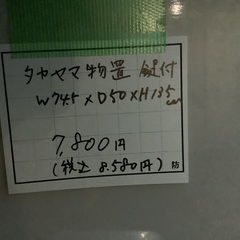 タヤママ物置 鍵付
W74.5×D50×H135cm
7,800円
(税込 8.580円) 防